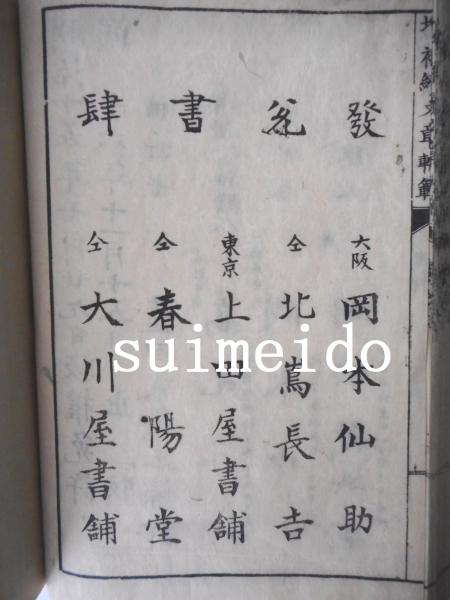 發兌書肆
大阪 岡本仙助
仝 北嶌長吉
東京 上田屋書舗
仝 春陽堂
仝 大川屋書舗
文章軌範
suimeido